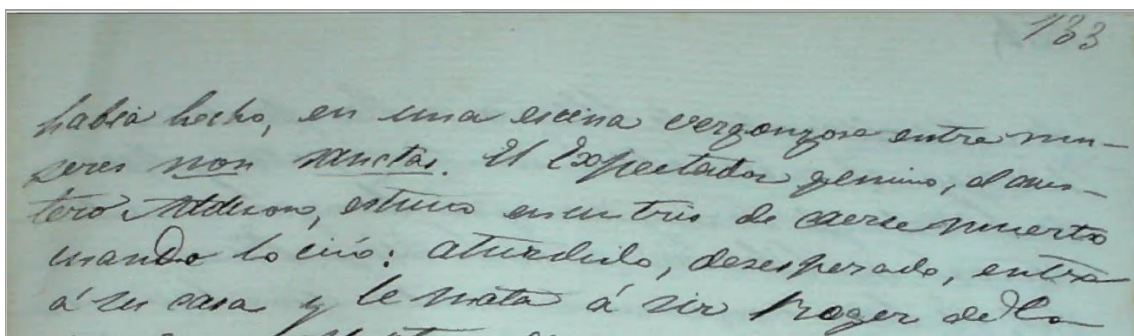 133
había hecho, en una escena vergonzosa entre mu-
geres non sanctas. El Expectador genuino, el aus-
tero Addison, estuvo en un tris de caerse muerto
cuando lo vió: aturdido, desesperado, entra
á su casa y le mata á sir Roger de